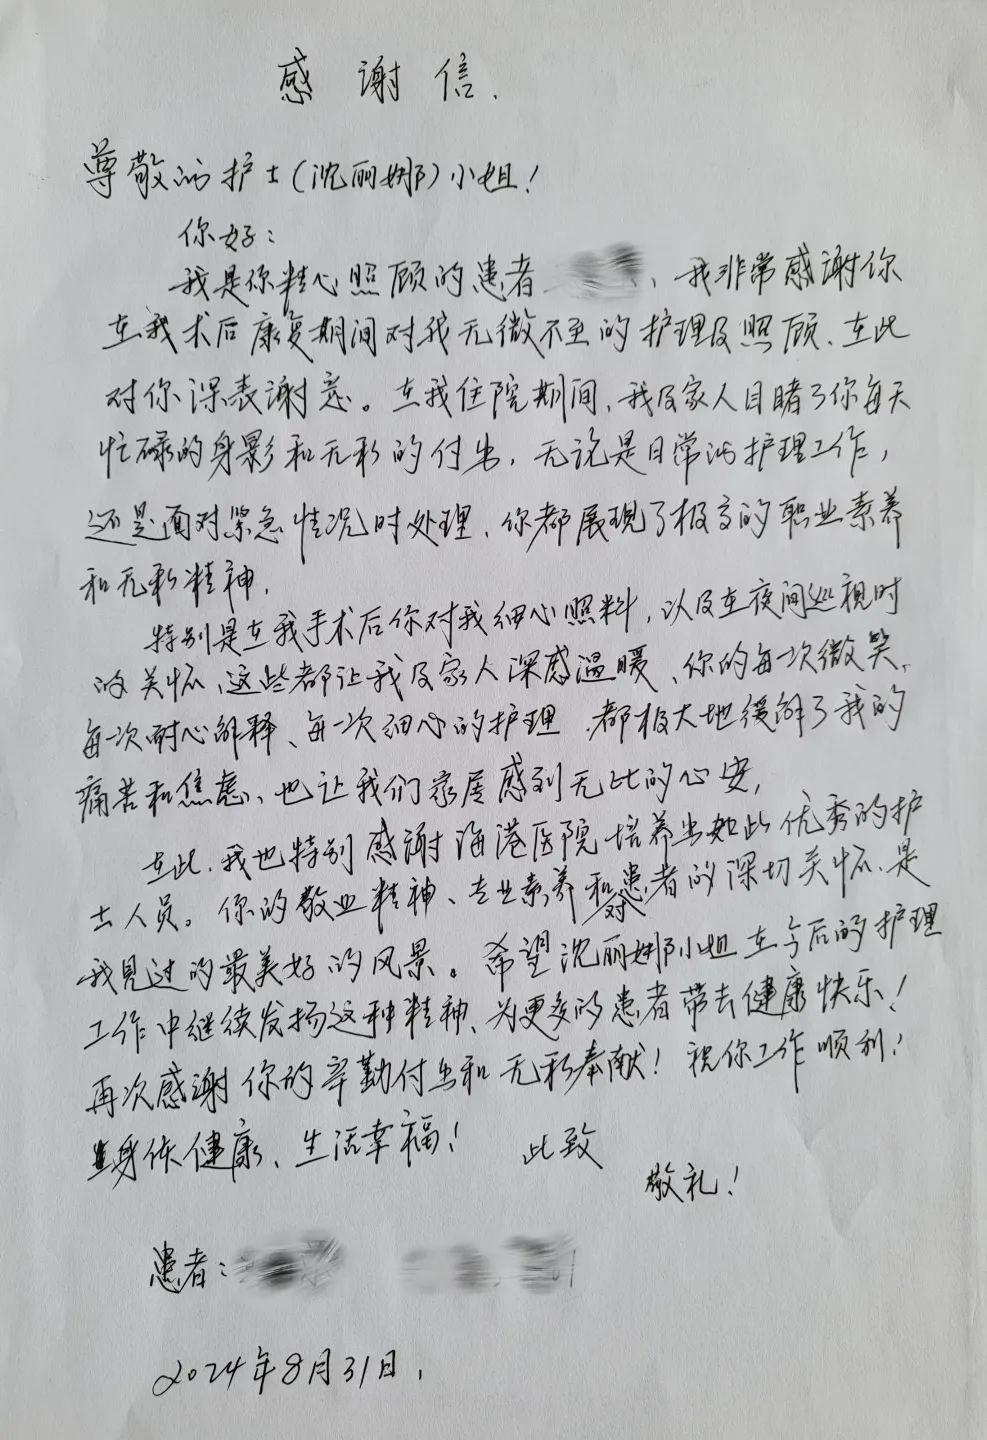 感谢信.
尊敬的护士(沈丽娜)小姐!
你好:
我是你精心照顾的患者 , 我非常感谢你
在我术后康复期间对我无微不至的护理及照顾、在此
对你深表谢意。在我住院期间,我及家人目睹了你每天
忙碌的身影和无私的付出,无论是日常的护理工作,
还是面对紧急情况时处理、你都展现了极高的职业素养
和无私精神.
特别是在我手术后你对我细心照料,以及在夜间巡视时
的关怀、这些都让我及家人深感温暖、你的每一次微笑、
每一次耐心解释、每一次细心的护理、都极大地缓解了我的
痛苦和焦虑、也让我们家属感到无比的心安,
在此、我也特别感谢海港医院培养出如此优秀的护
士人员。你的敬业精神、专业素养和对患者的深切关怀、是
我见过的最美好的风景。希望沈丽娜小姐在今后的护理
工作中继续发扬这种精神、为更多的患者带去健康快乐!
再次感谢你的辛勤付出和无私奉献!祝你工作顺利!
身体健康、生活幸福! 此致
敬礼!
患者:
2024年8月31日.